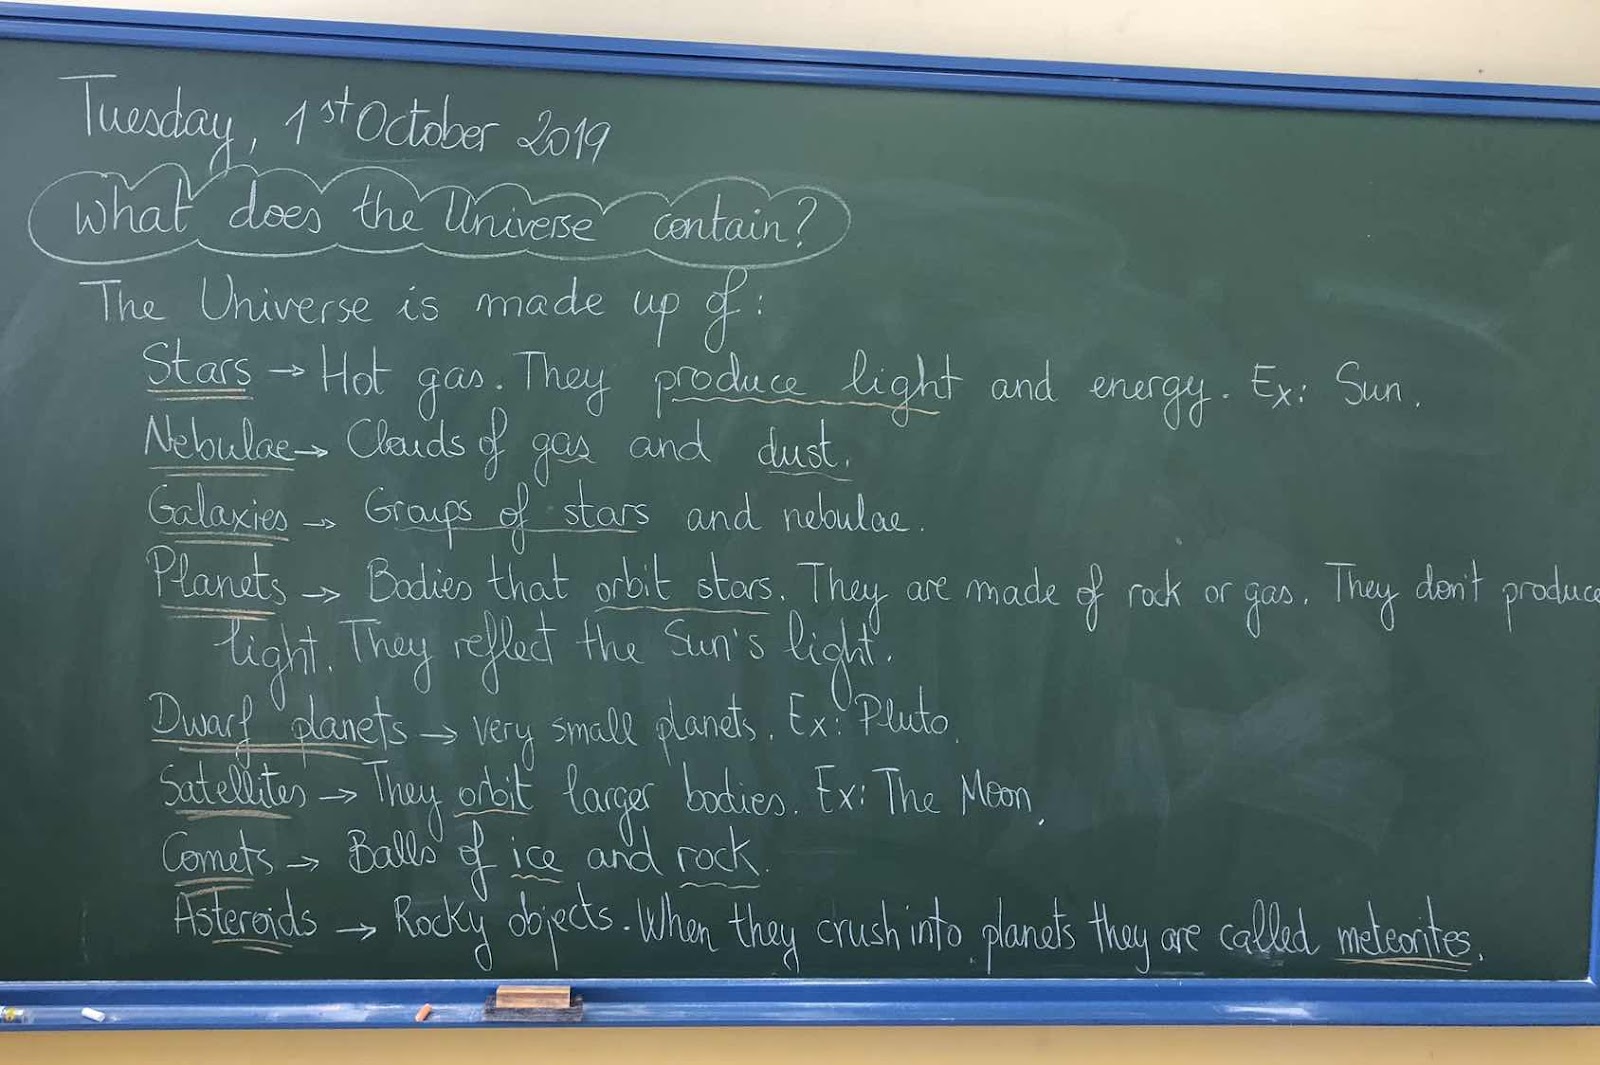 Tuesday, 1st October 2019
What does the Universe contain?
The Universe is made up of:
Stars → Hot gas. They produce light and energy. Ex: Sun.
Nebulae → Clouds of gas and dust.
Galaxies → Groups of stars and nebulae.
Planets → Bodies that orbit stars. They are made of rock or gas. They don't produce
light. They reflect the Sun's light.
Dwarf planets → very small planets. Ex: Pluto.
Satellites → They orbit larger bodies. Ex: The Moon.
Comets → Balls of ice and rock.
Asteroids → Rocky objects. When they crush into planets they are called meteorites.